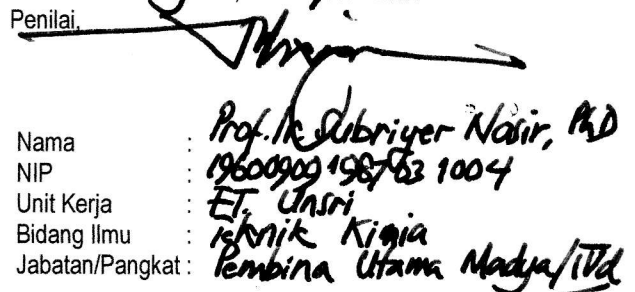 Penilai,
Nama : Prof. Ir. Subriyer Nasir, PhD
NIP : 19600909 198703 1004
Unit Kerja : FT. Unsri
Bidang Ilmu : Teknik Kimia
Jabatan/Pangkat : Pembina Utama Madya/IVd